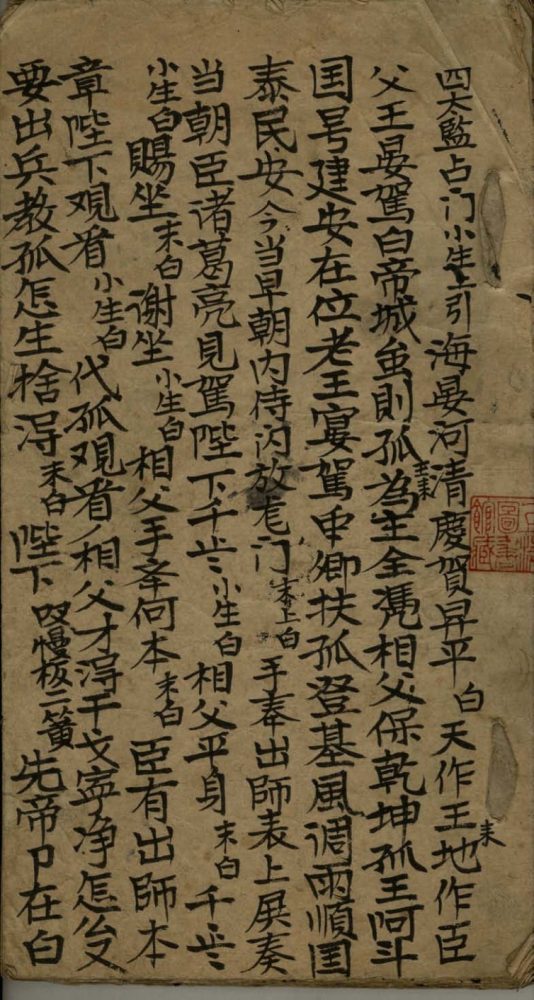 四大監占门小生上引海晏河清慶賀昇平白天作王地作臣
父王晏駕白帝城虽則孤為主全凴相父保乾坤孤王阿斗
国号建安在位老王宴駕中卿扶孤登基風调雨順国
泰民安今当早朝内侍闪放龙门末上白手奉出師表上展奏
当朝臣诸葛亮見駕陛下千岁〻小生白相父平身末白千岁〻
小生白賜坐末白谢坐小生白相父手奉何本末白臣有出師本
章陛下观看小生白代孤观看〻相父才淂干戈寧净怎么
要出兵教孤怎生捨淂末白陛下叹慢板二簧先帝卩在白